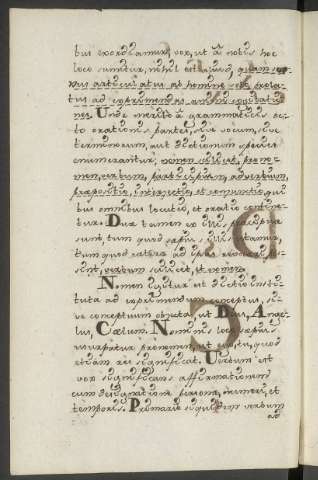 bus exordiamur, vox, ut a nobis hoc
loco sumitur, nihil est aliud, quam so-
nus articulatus ab homine prola-
tus ad exprimendas animi cogitatio-
nes. Unde merito a grammaticis oc-
to orationis partes, sive vocum, sive
terminorum, aut dictionum species
enumerantur, nomen scilicet, prono-
men, verbum, participium, adverbium,
praepositio, interjectio, et conjunctio, qui-
bus omnibus locutio, et oratio contine-
tur. Duae tamen ex illis praecipuae
sunt, tum quod saepius illis utamur,
tum quod caetera ad ipsas revocari pos-
sint, verbum scilicet, et nomen.
Nomen igitur est dictio insti-
tuta ad exprimendum conceptus, si-
ve conceptuum objecta, ut Deus, Ange-
lus, Caelum. Nominis loco saepius
usurpatur pronomen, ut ego, tu, quod
etiam rei significat. Verbum est
vox significans affirmationem
cum designatione personae, numeri, et
temporis. Primarie siquidem verbum